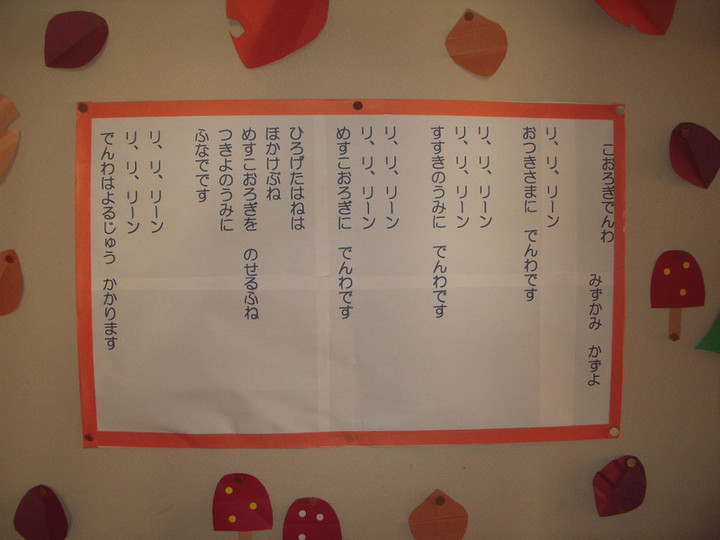 こおろぎでんわ
みずかみ　かずよ
リ、リ、リーン
おつきさまに　でんわです
リ、リ、リーン
リ、リ、リーン
すすきのうみに　でんわです
リ、リ、リーン
リ、リ、リーン
めすこおろぎに　でんわです
ひろげたはねは
ほかけぶね
めすこおろぎを　のせるふね
つきよのうみに
ふなでです
リ、リ、リーン
リ、リ、リーン
でんわはよるじゅう　かかります